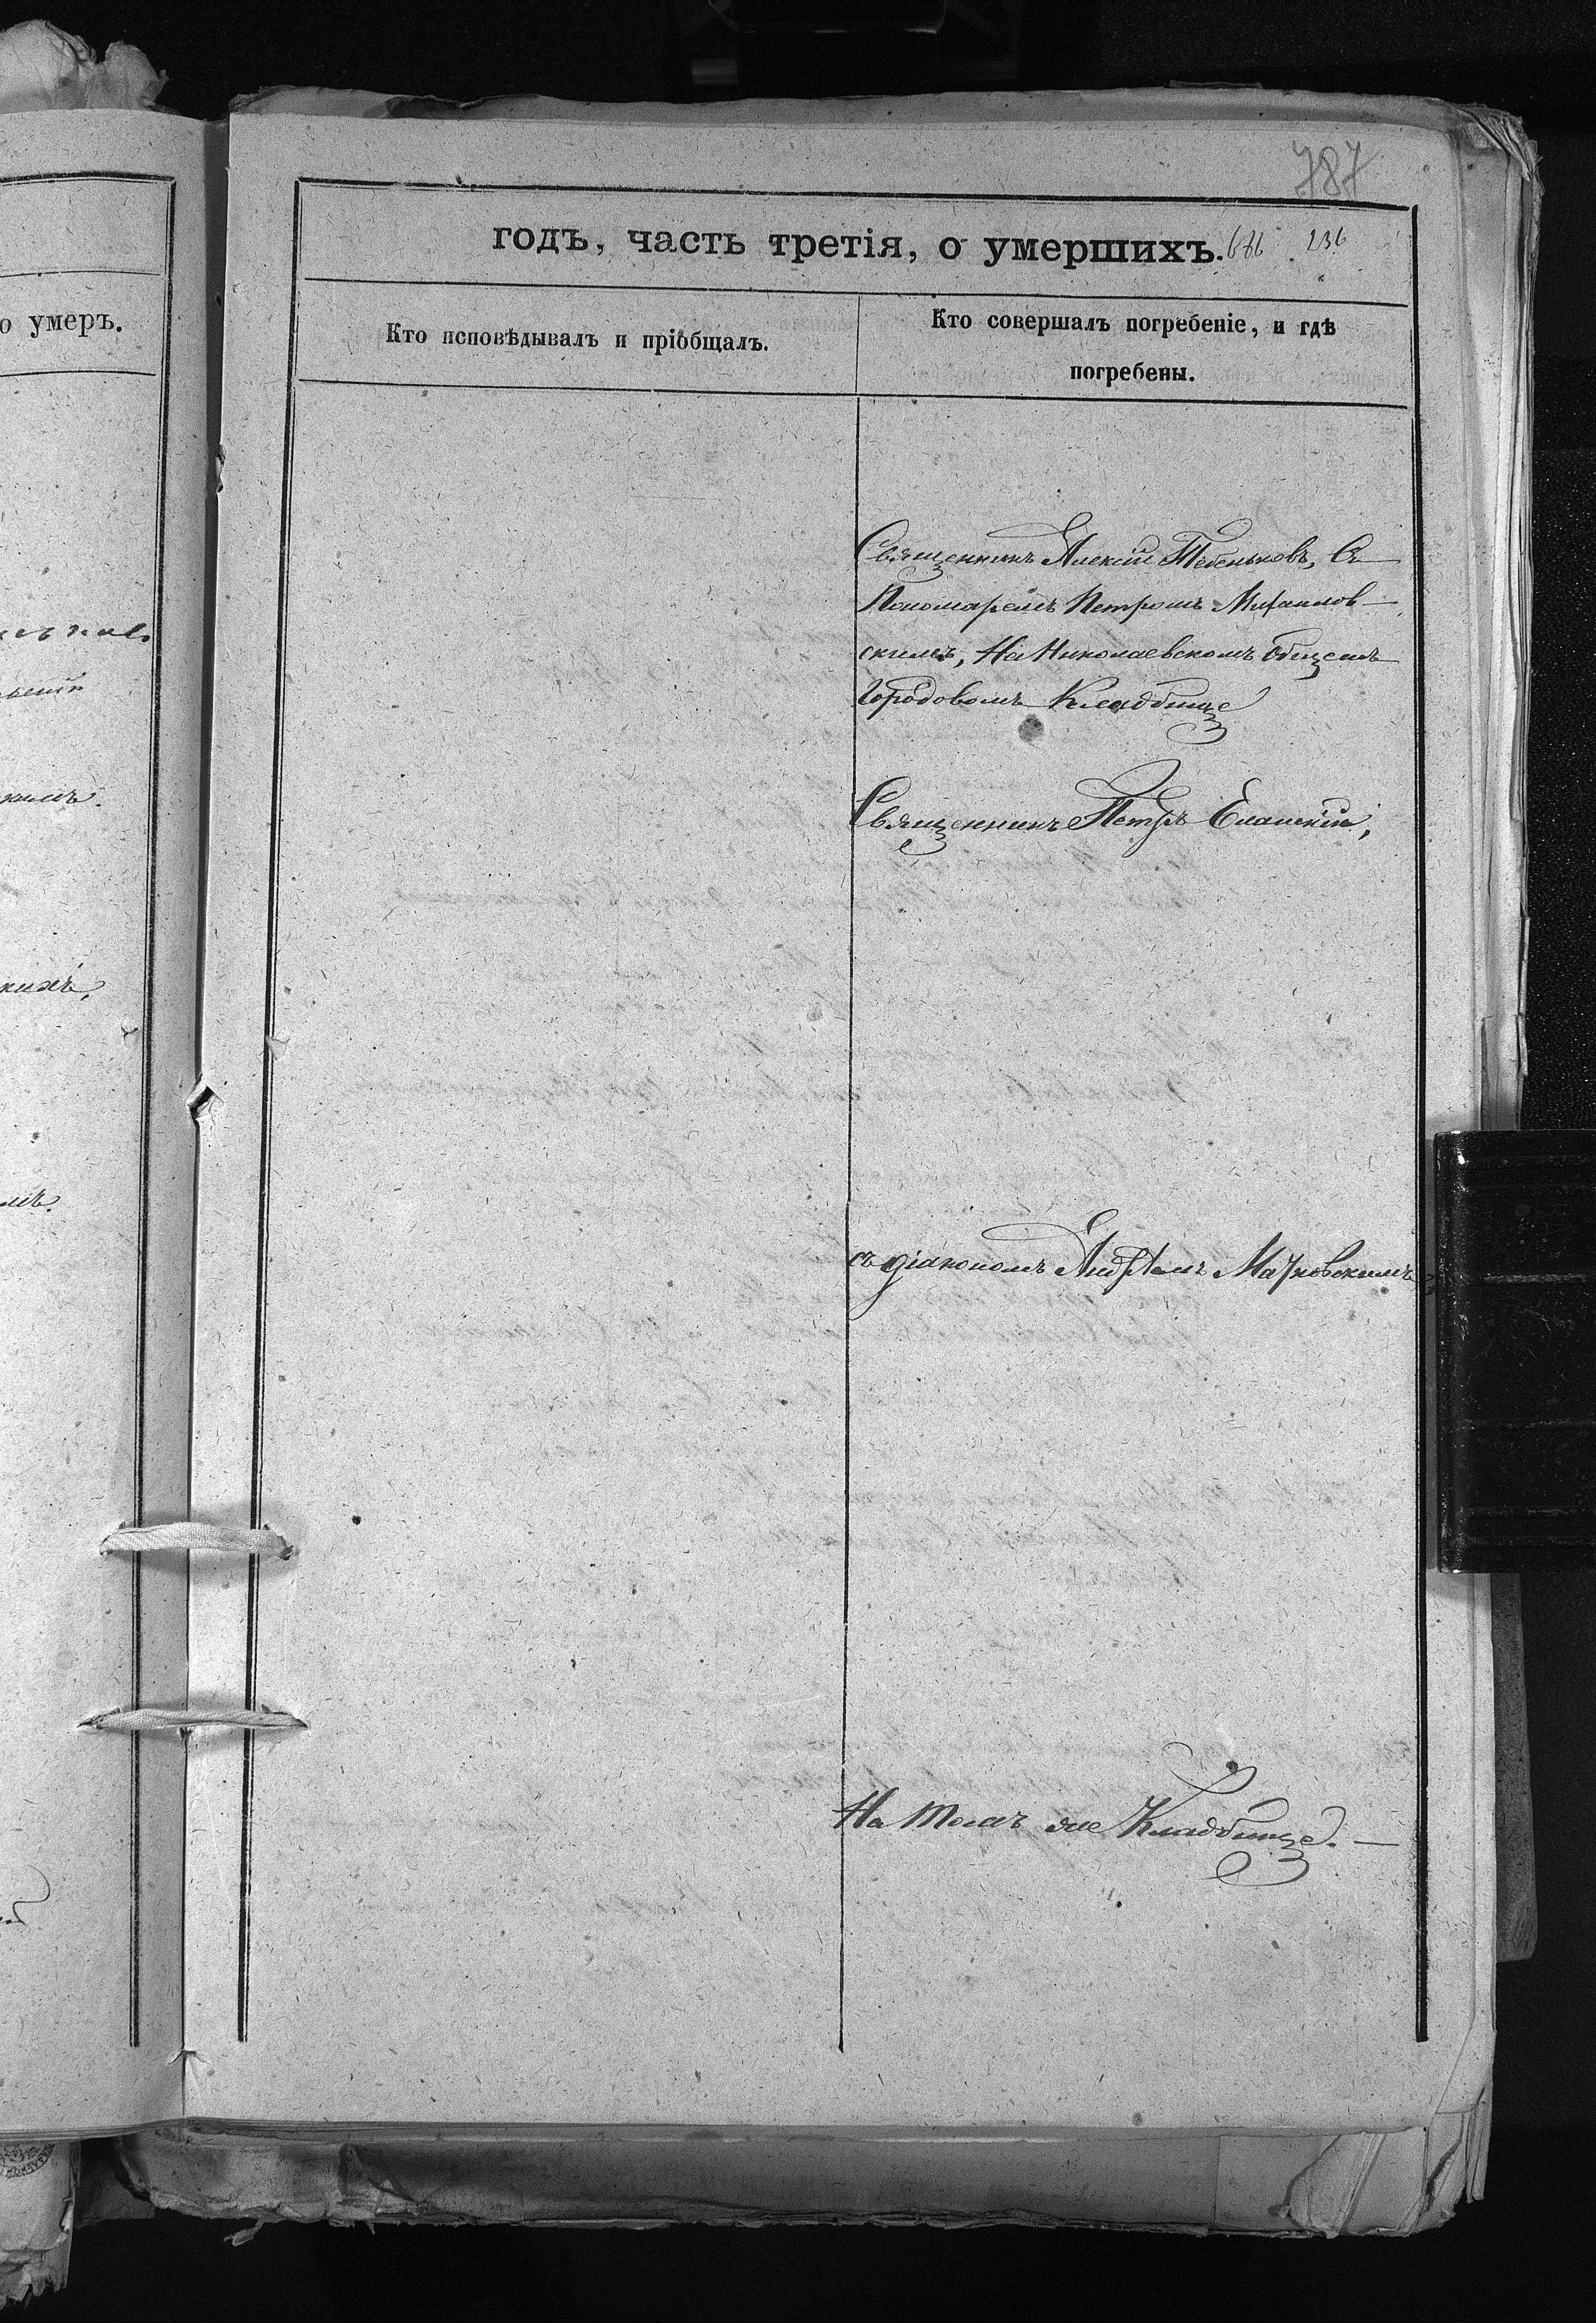 787
годъ, часть третія, о умершихъ. 686 236
о умеръ.
Кто исповѣдывалъ и пріобщалъ.
Кто совершалъ погребеніе, и гдѣ
погребены.
Священникъ Алексій Тебеньковъ, Съ
Пономаремъ Петромъ Михаилов-
скимъ, На Николаевскомъ Общемъ
Городовомъ Кладбище
Священникъ Петръ Еланскій,
съ діакономъ Андреемъ Матковскимъ
На томъ же Кладбище. —